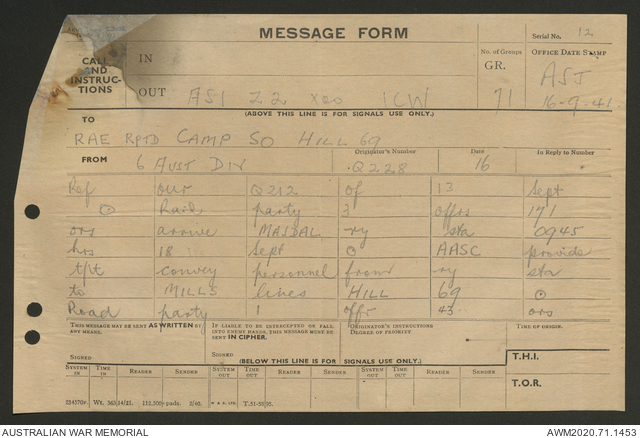 MESSAGE FORM
Serial No. 12
CALL AND INSTRUC- TIONS
IN
No. of Groups
GR. 71
OFFICE DATE STAMP
AST
16-9-41
OUT AS1 Z2 xoo ICW
(ABOVE THIS LINE IS FOR SIGNALS USE ONLY.)
TO
RAE RPTD CAMP SO HILL 69
FROM 6 AUST DIV
Originator's Number Q228
Date 16
In Reply to Number
Ref our Q212 of 13 Sept
⊙ Rail party 3 offrs 171
ors arrive MAJDAL -ry sta 0945
hrs 18 Sept ⊙ AASC provide
t/pt convey personnel from -ry sta
to MILLS lines HILL 69 ⊙
Road party 1 offr 43 ors
THIS MESSAGE MAY BE SENT AS WRITTEN BY ANY MEANS.
IF LIABLE TO BE INTERCEPTED OR FALL INTO ENEMY HANDS, THIS MESSAGE MUST BE SENT IN CIPHER.
ORIGINATOR'S INSTRUCTIONS DEGREE OF PRIORITY
TIME OF ORIGIN.
SIGNED
SIGNED
(BELOW THIS LINE IS FOR SIGNALS USE ONLY.)
T.H.I.
SYSTEM IN TIME IN READER SENDER SYSTEM OUT TIME OUT READER SENDER SYSTEM OUT TIME OUT READER SENDER
T.O.R.
AUSTRALIAN WAR MEMORIAL
AWM2020.71.1453